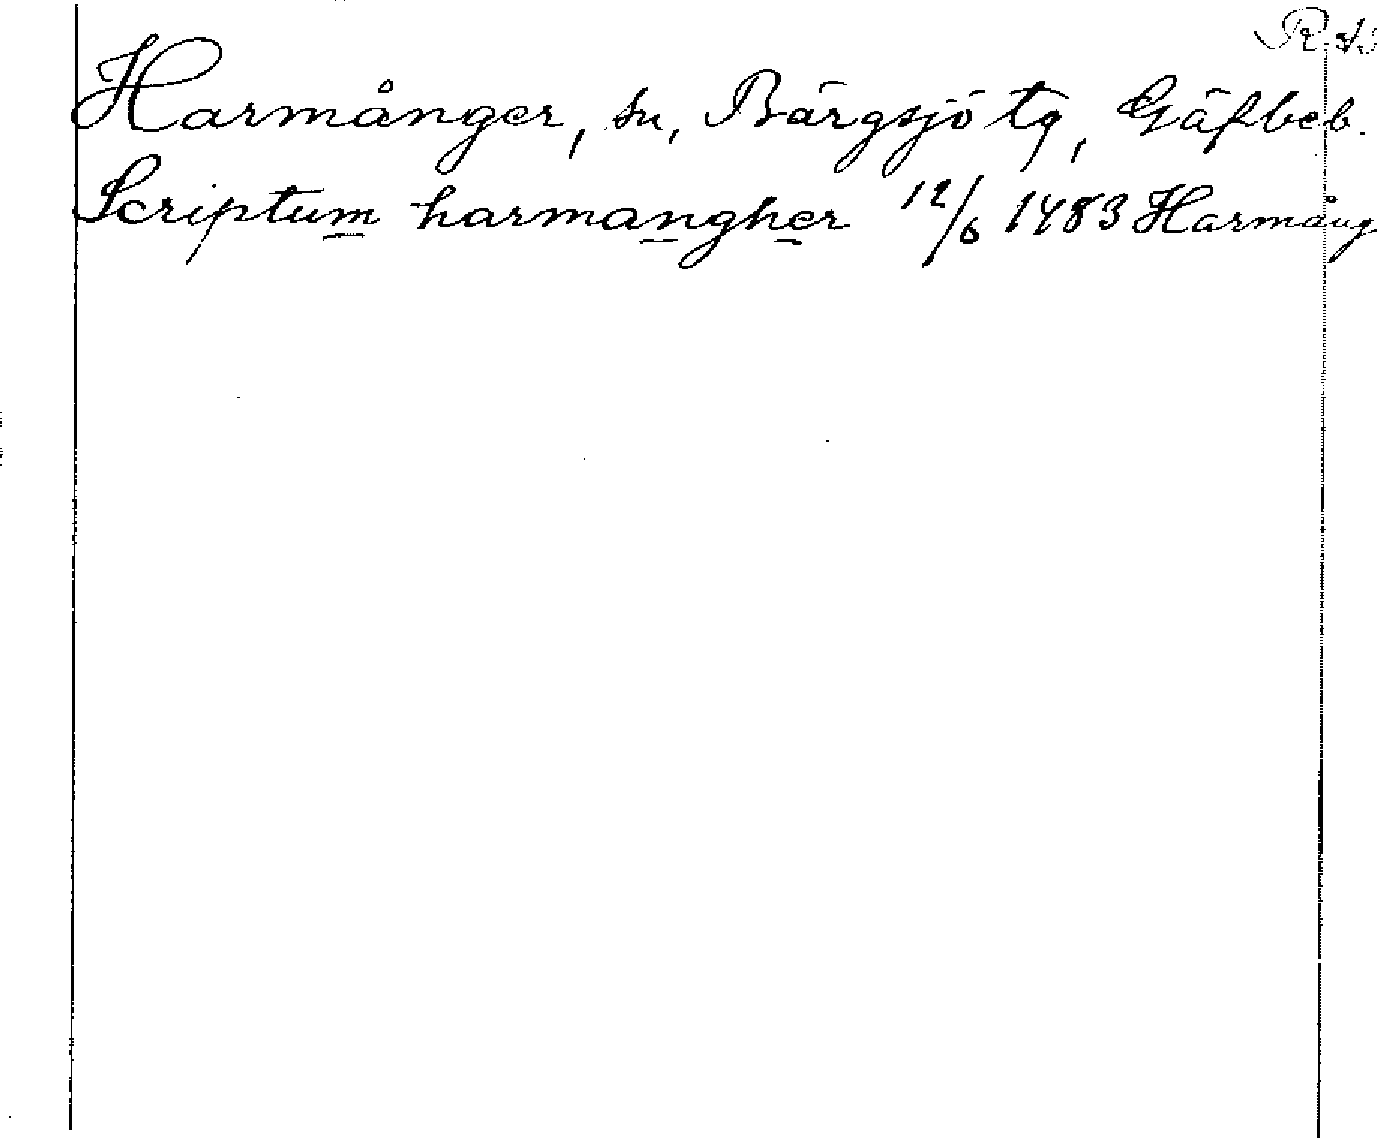 Harmånger, sn, Bärgsjö tg, Gäflbeb.
Scriptum harmangher 12/6 1483 Harmång